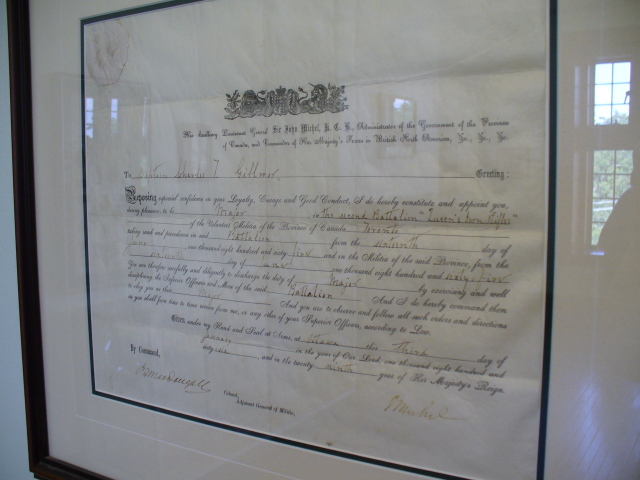 His Excellency Lieutenant General Sir John Michel, K. C. B., Administrator of the Government of the Province
of Canada, and Commander of Her Majesty's Forces in British North America, &c., &c., &c.
To Captain Charles T. Gillmor. Greeting:
Reposing especial confidence in your Loyalty, Courage and Good Conduct, I do hereby constitute and appoint you,
during pleasure, to be Major in the second Battalion "Queen's Own Rifles"
of the Volunteer Militia of the Province of Canada Toronto
taking rank and precedence in said Battalion from the day of
June one thousand eight hundred and sixty five and in the Militia of the said Province, from the
day of June one thousand eight hundred and sixty five
You are therefore carefully and diligently to discharge the duty of Major by exercising and well
disciplining the Inferior Officers and Men of the said Battalion And I do hereby command them
to obey you as their And you are to observe and follow all such orders and directions
as you shall from time to time receive from me, or any other of your Superior Officers, according to Law.
Given under my Hand and Seal at Arms, at Ottawa this Third day of
January in the year of Our Lord one thousand eight hundred and
sixty six, and in the twenty ninth year of Her Majesty's Reign.
By Command,
P. L. MacDougall
Colonel,
Adjutant General of Militia.
J Michel